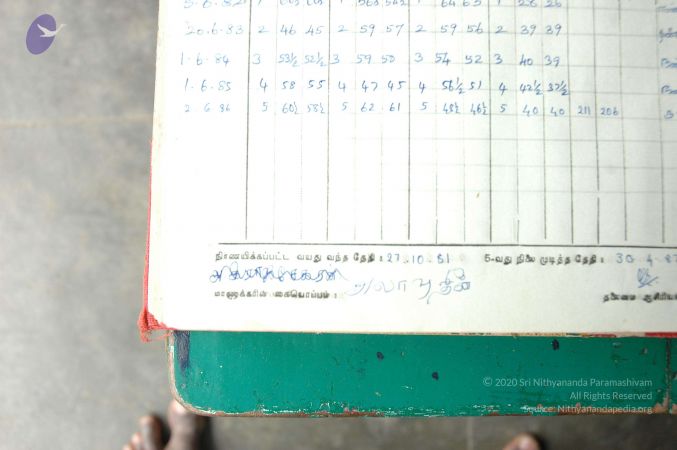 20.6.83 2 46 45 2 59 57 2 59 56 2 39 39
1.6.84 3 53½ 52½ 3 59 50 3 54 52 3 40 39
1.6.85 4 58 55 4 47 45 4 56½ 51 4 42½ 37½
2.6.86 5 60½ 58½ 5 62 61 5 48½ 46½ 5 40 40 211 206
நிர்ணயிக்கப்பட்ட வயது வந்த தேதி : 27.10.81 5-வது நிலை முடித்த தேதி : 30.4.87
மாணாக்கரின் கையொப்பம் : தலைமை ஆசிரிய
© 2020 Sri Nithyananda Paramashivam
All Rights Reserved
Source: Nithyanandapedia.org